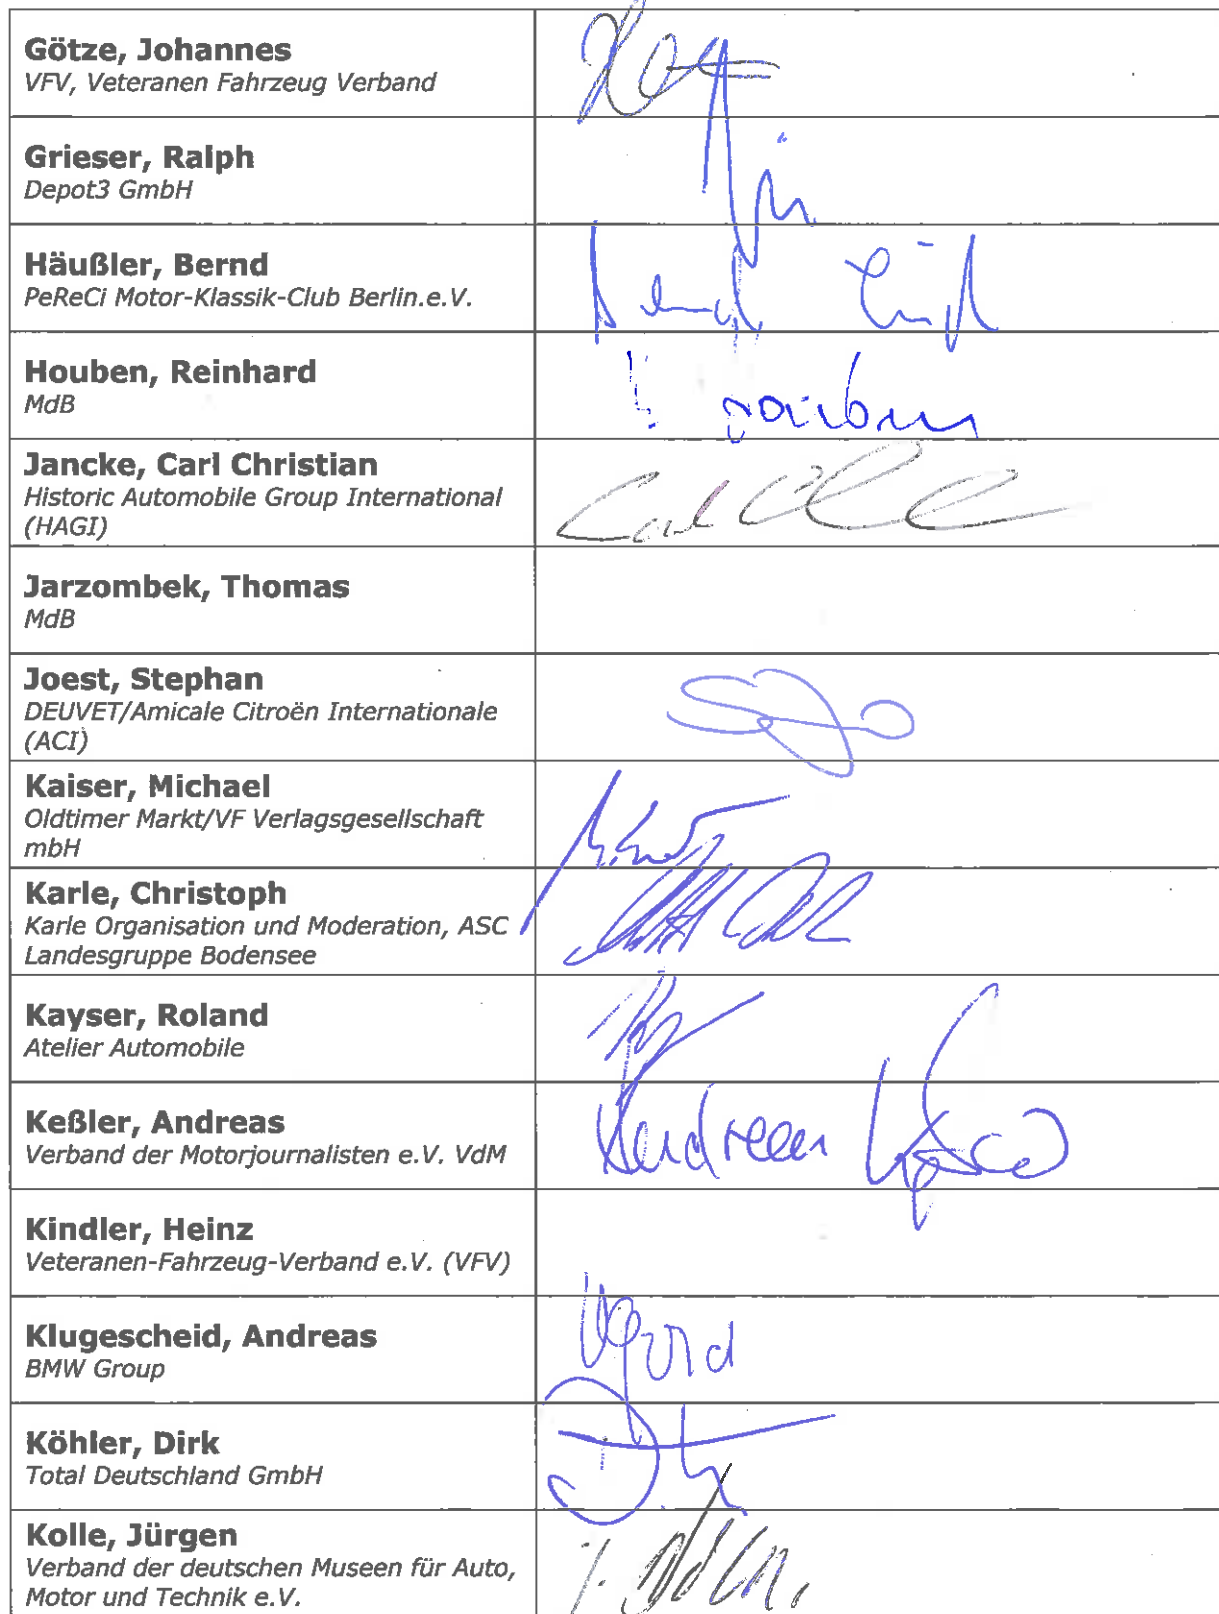 Götze, Johannes
VFV, Veteranen Fahrzeug Verband
Grieser, Ralph
Depot3 GmbH
Häußler, Bernd
PeReCi Motor-Klassik-Club Berlin.e.V.
Houben, Reinhard
MdB
Jancke, Carl Christian
Historic Automobile Group International
(HAGI)
Jarzombek, Thomas
MdB
Joest, Stephan
DEUVET/Amicale Citroën Internationale
(ACI)
Kaiser, Michael
Oldtimer Markt/VF Verlagsgesellschaft
mbH
Karle, Christoph
Karle Organisation und Moderation, ASC
Landesgruppe Bodensee
Kayser, Roland
Atelier Automobile
Keßler, Andreas
Verband der Motorjournalisten e.V. VdM
Andreas
Kindler, Heinz
Veteranen-Fahrzeug-Verband e.V. (VFV)
Klugescheid, Andreas
BMW Group
Köhler, Dirk
Total Deutschland GmbH
Kolle, Jürgen
Verband der deutschen Museen für Auto,
Motor und Technik e.V.